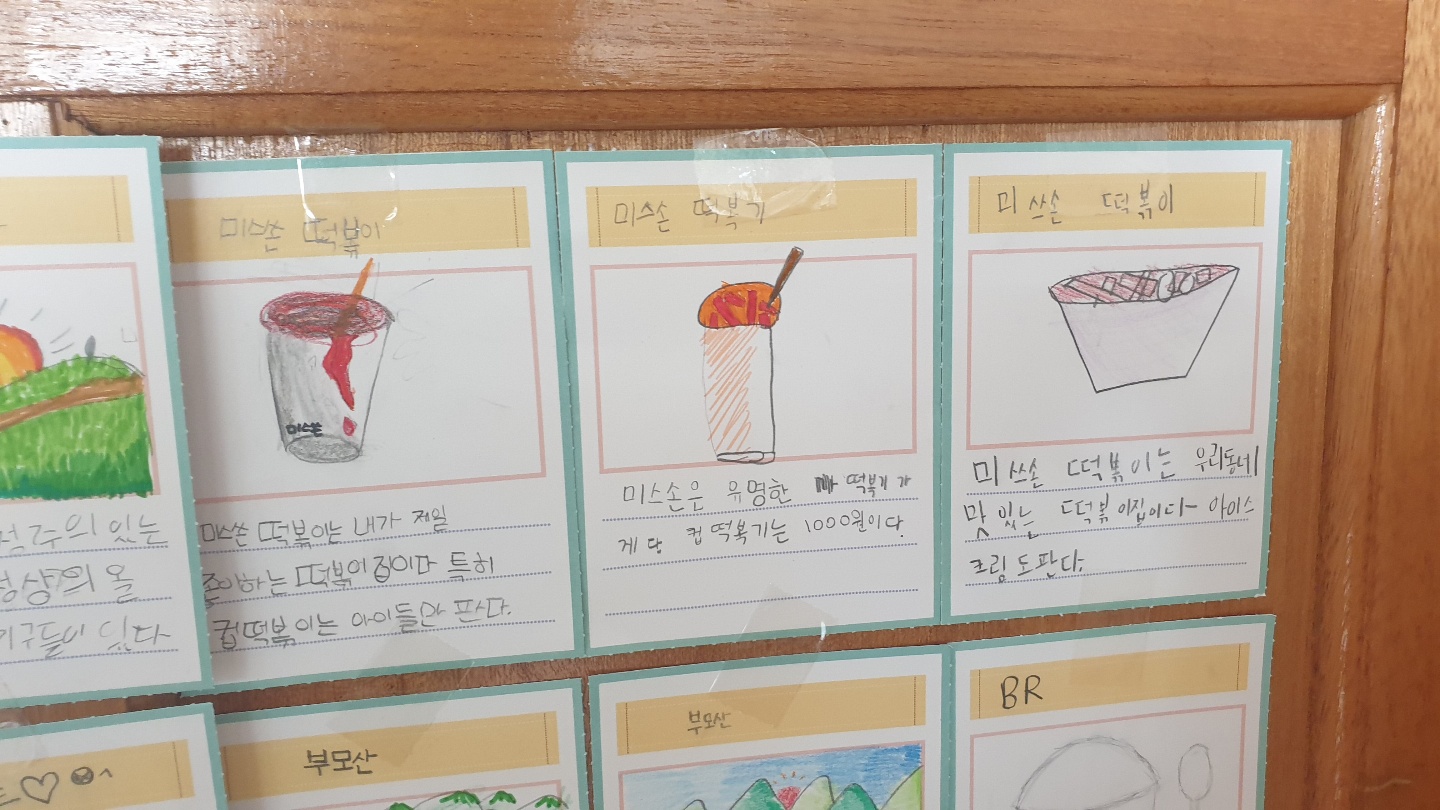 미스쏜 떡볶이
미스쏜
미스쏜 떡볶이는 내가 제일
좋아하는 떡볶이 집이다 특히
컵떡볶이는 아이들만 판다.
미스손 떡볶기
미스손은 유명한 떡볶기 가
게 다 컵 떡볶기는 1000원이다.
미 쓰손 떡볶이
미 쓰손 떡볶이는 우리동네
맛있는 떡볶이집이다 아이스
크림도판다.
의 있는
상의 올
기구들이 있다
부모산
부모산
BR